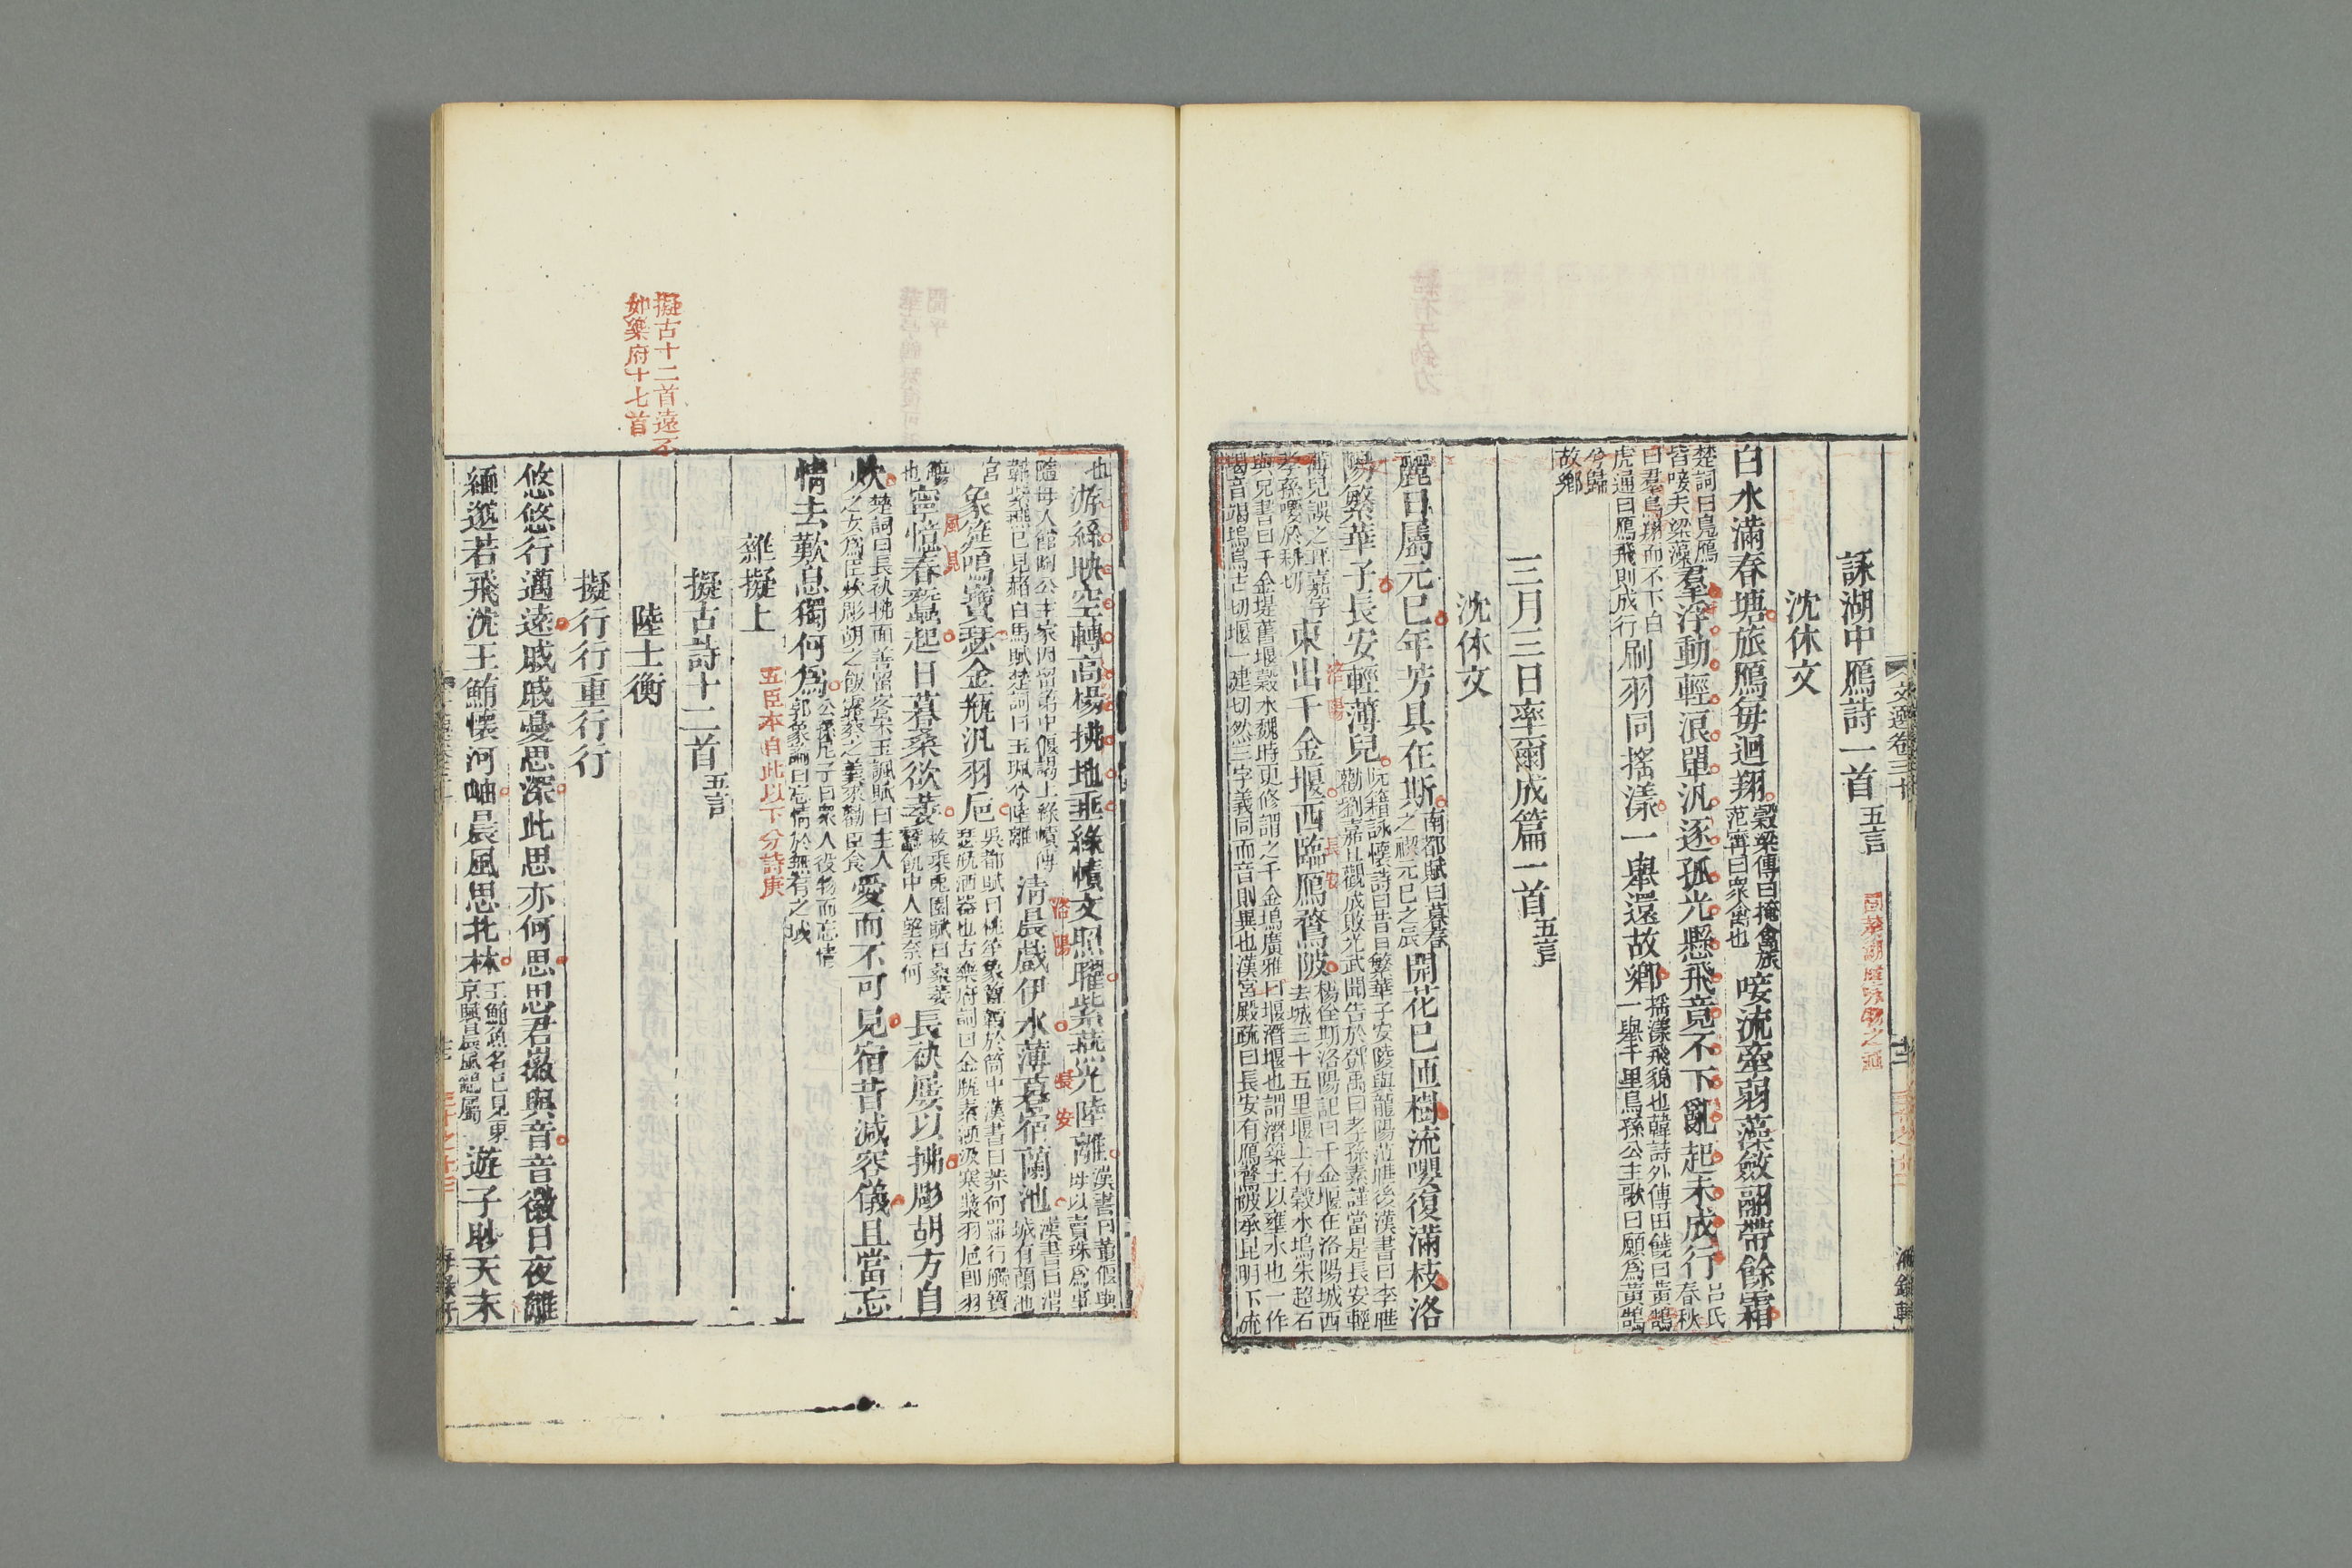 文選卷三十
詠湖中鴈詩一首五言
沈休文
白水滿春塘旅鴈每迴翔穀梁傳曰掩禽旅范甯曰衆禽也唼流牽弱藻斂翮帶餘霜
楚詞曰鳧鴈皆唼夫梁藻羣浮動輕浪單汎逐孤光懸飛竟不下亂起未成行呂氏春秋
曰羣鳥翔而不下白虎通曰鴈飛則成行刷羽同搖漾一舉還故鄉搖漾飛貌也韓詩外傳田饒曰黃鵠一舉千里烏孫公主歌曰願爲黃鵠
兮歸故鄉
三月三日率爾成篇一首五言
沈休文
麗日屬元巳年芳具在斯南都賦曰暮春之禊元巳之辰開花已匝樹流嚶復滿枝洛
陽繁華子長安輕薄兒阮籍詠懷詩曰昔日繁華子安陵與龍陽范曄後漢書曰李曄勸劉嘉且觀成敗光武聞告於鄧禹曰孝孫素謹當是長安輕
薄兒誤之耳嘉字孝孫嚶於耕切東出千金堰西臨鴈鶩陂楊佺期洛陽記曰千金堰在洛陽城西去城三十五里堰上有穀水塢朱超石
與兄書曰千金堤舊堰穀水魏時更修謂之千金塢廣雅曰堰潛堰也謂潛築土以壅水也一作堨音竭塢烏古切堰一建切然三字義同而音則異也漢宮殿疏曰長安有鴈鶩陂承昆明下流
也游絲映空轉高楊拂地垂綠幘文照耀紫燕光陸離漢書曰董偃與母以賣珠爲事
隨母入館陶公主家因留第中偃謁上綠幘傅韝紫燕已見赭白馬賦楚詞曰玉珮兮陸離清晨戲伊水薄暮宿蘭池漢書曰渭城有蘭池
宮象筵鳴寶瑟金瓶汎羽卮吳都賦曰桃笙象簟韜於筒中漢書曰莽何羅行觸寶瑟瓶酒器也古樂府詞曰金瓶素綆汲寒漿羽卮即羽
觴也寧憶春蠶起日暮桑欲萎枚乘兔園賦曰桑萎蠶飢中人望奈何長袂屢以拂彫胡方自
炊楚詞曰長袂拂面善留客宋玉諷賦曰主人之女爲臣炊彫胡之飯露葵之羹來勸臣食愛而不可見宿昔減容儀且當忘
情去歎息獨何爲公孫尼子曰衆人役物而忘情郭象論曰忘情於無有之域
雜擬上
五臣本自此以下分詩庚
擬古詩十二首五言
擬古十二首遠不
如樂府十七首
陸士衡
擬行行重行行
悠悠行邁遠戚戚憂思深此思亦何思思君徽與音音徽日夜離
緬邈若飛沈王鮪懷河岫晨風思北林王鮪魚名已見東京賦晨風鸇屬遊子眇天末